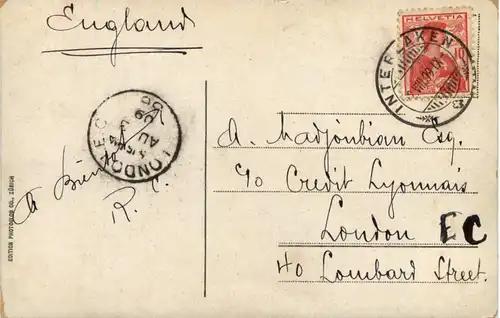 England
HELVETIA
10
INTERLAKEN
LONDON. E.C.
5.15 PM
AU
09
à Bien
R. C.
A. Madjoubian Esq.
c/o Credit Lyonnais
London EC
40 Lombard Street.
EDITION PHOTOGLOB CO., ZÜRICH